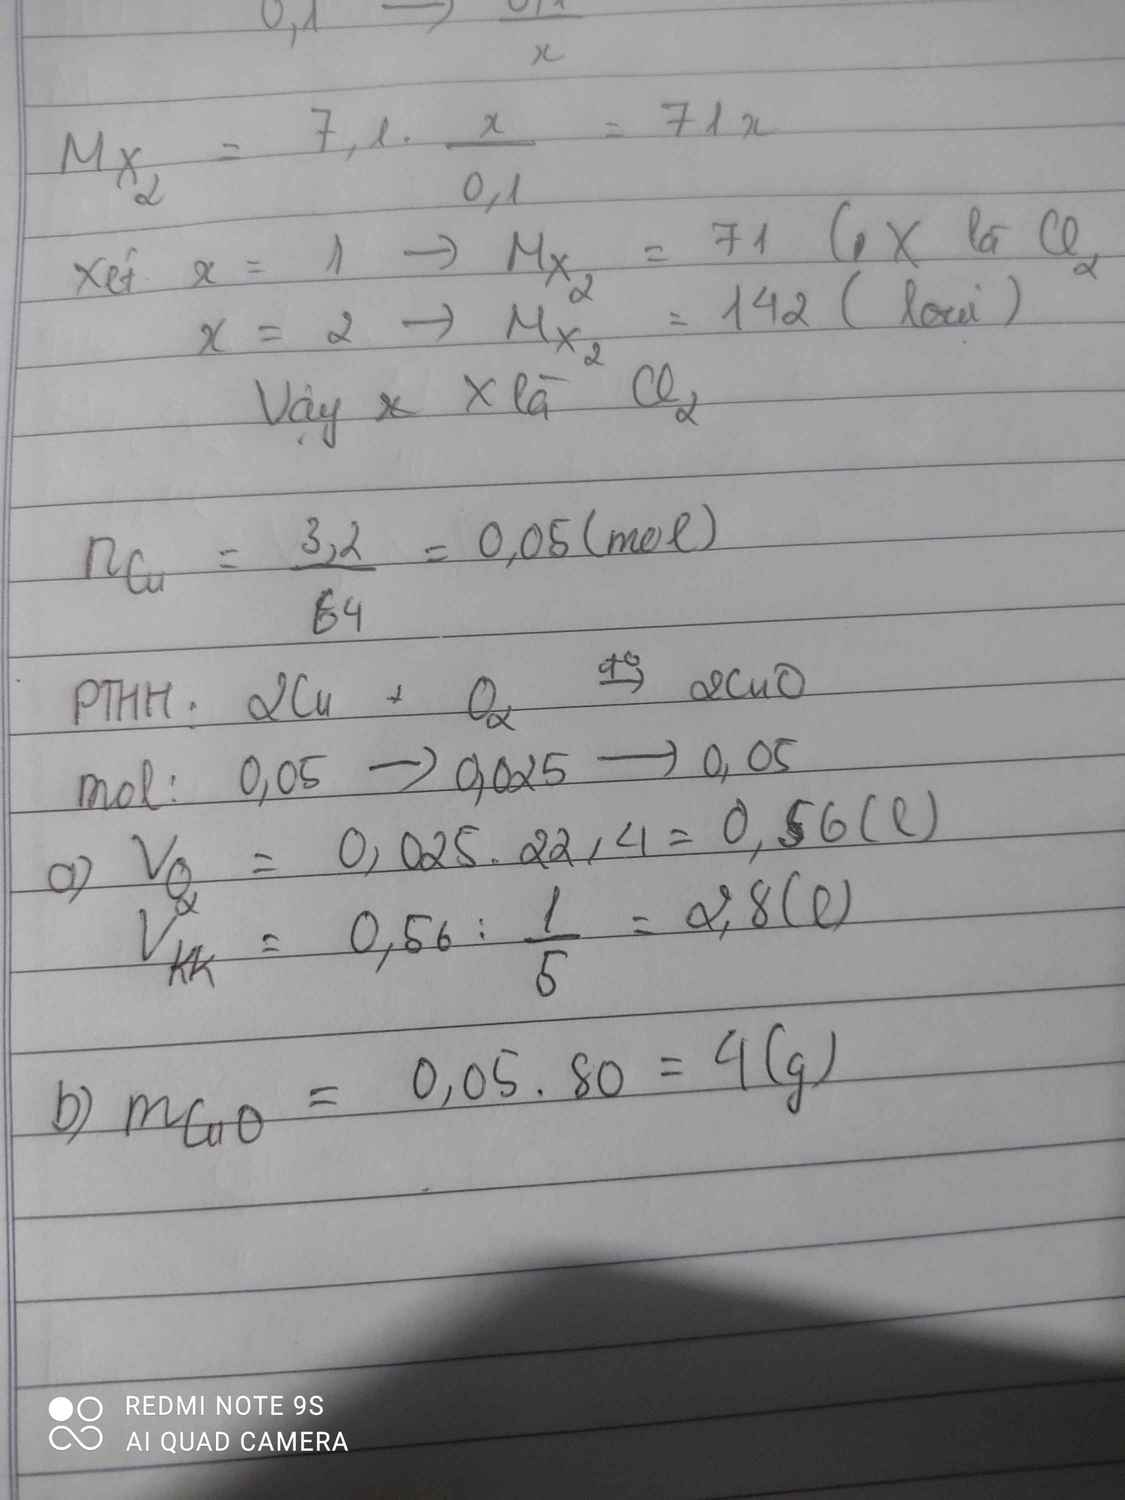 0,1 → 0,1/x
M_X₂ = 7,1 . x/0,1 = 71x
Xét x = 1 → M_X₂ = 71 ↳ X là Cl₂
x = 2 → M_X₂ = 142 ( loại )
Vậy X là Cl₂
n_Cu = 3,2/64 = 0,05 (mol)
PTHH: 2Cu + O₂ t°→ 2CuO
mol: 0,05 → 0,025 → 0,05
a) V_O₂ = 0,025 . 22,4 = 0,56 (l)
V_KK = 0,56 : 1/5 = 2,8 (l)
b) m_CuO = 0,05 . 80 = 4 (g)
REDMI NOTE 9S
AI QUAD CAMERA